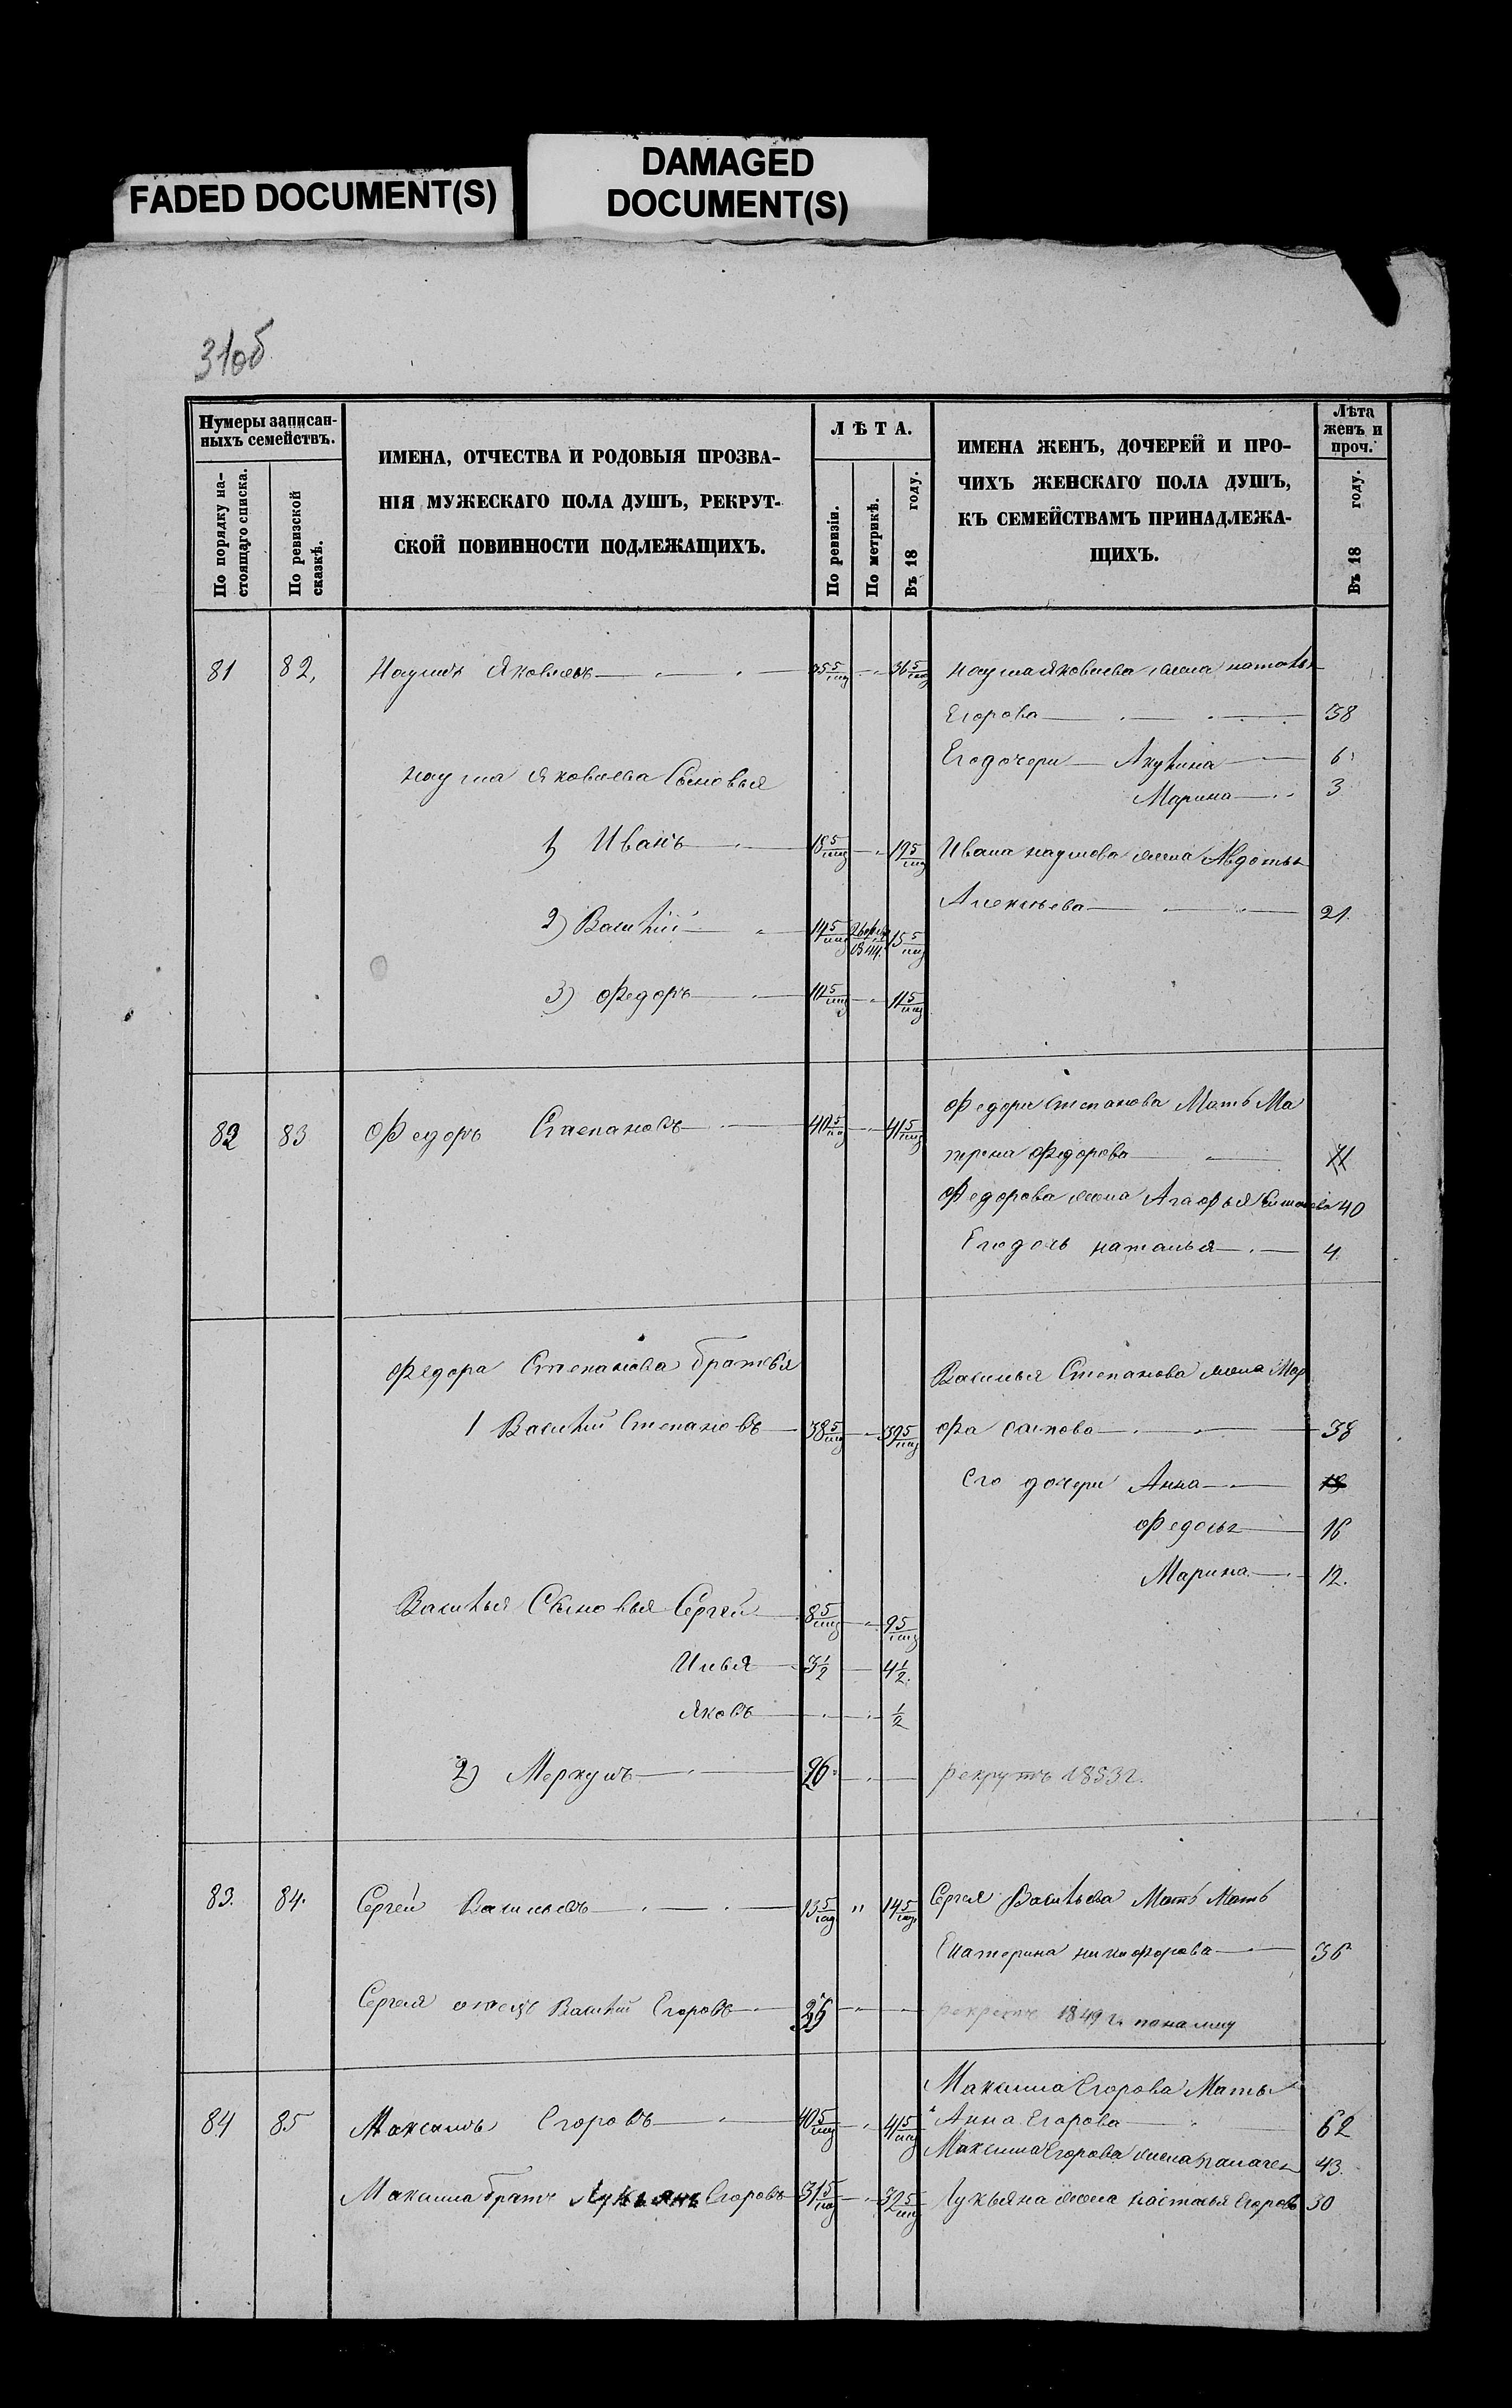 FADED DOCUMENT(S)
DAMAGED
DOCUMENT(S)
31об
Нумеры записан-
ныхъ семействъ.
По порядку на-
стоящаго списка.
По ревизской
сказкѣ.
ИМЕНА, ОТЧЕСТВА И РОДОВЫЯ ПРОЗВА-
НІЯ МУЖЕСКАГО ПОЛА ДУШЪ, РЕКРУТ-
СКОЙ ПОВИННОСТИ ПОДЛЕЖАЩИХЪ.
ЛѢТА.
По ревизіи.
По метрикѣ.
Въ 18 году.
ИМЕНА ЖЕНЪ, ДОЧЕРЕЙ И ПРО-
ЧИХЪ ЖЕНСКАГО ПОЛА ДУШЪ,
КЪ СЕМЕЙСТВАМЪ ПРИНАДЛЕЖА-
ЩИХЪ.
Лѣта
женъ и
проч.
Въ 18 году.
81 82. Наумъ Яковлевъ 35 5/мц 36 5/мц Наума Яковлева жена Наталья
Егорова 38
Его дочери Акулина 6
Наума Яковлева Сыновья
Марина 3
1) Иванъ 18 5/мц 19 5/мц Ивана Наумова жена Авдотья
Алексѣева 21.
2) Василій 14 5/мц 15 5/мц
3) Федоръ 10 5/мц 11 5/мц
Федора Степанова Мать Ма
82 83 Федоръ Степановъ 40 5/мц 41 5/мц
трена Федорова 71
Федорова жена Агафья 40
Его дочь Наталья 4.
Федора Степанова братья
Василья Степанова жена Мар
1 Василій Степановъ 38 5/мц 39 5/мц фа 38
Его дочери Анна 18
Федосья 16
Марина 12.
Василья Сыновья Сергей 8 5/мц 9 5/мц
Илья 3½ 4½.
Яковъ ½
2) Меркулъ 26 рекрутъ 1853 г.
83. 84. Сергей Васильевъ 13 5/мц " 14 5/мц Сергея Васильева Мать Мать
Екатерина Никифорова 36
Сергея отецъ Василій Егоровъ 25 рекрутъ 1849 г.
Максима Егорова Мать
84 85 Максимъ Егоровъ 40 5/мц 41 5/мц Анна Егорова 62
Максима Егорова жена 43.
Максима братъ Лукьянъ Егоровъ 31 5/мц 32 5/мц Лукьяна жена Настасья Егорова 30